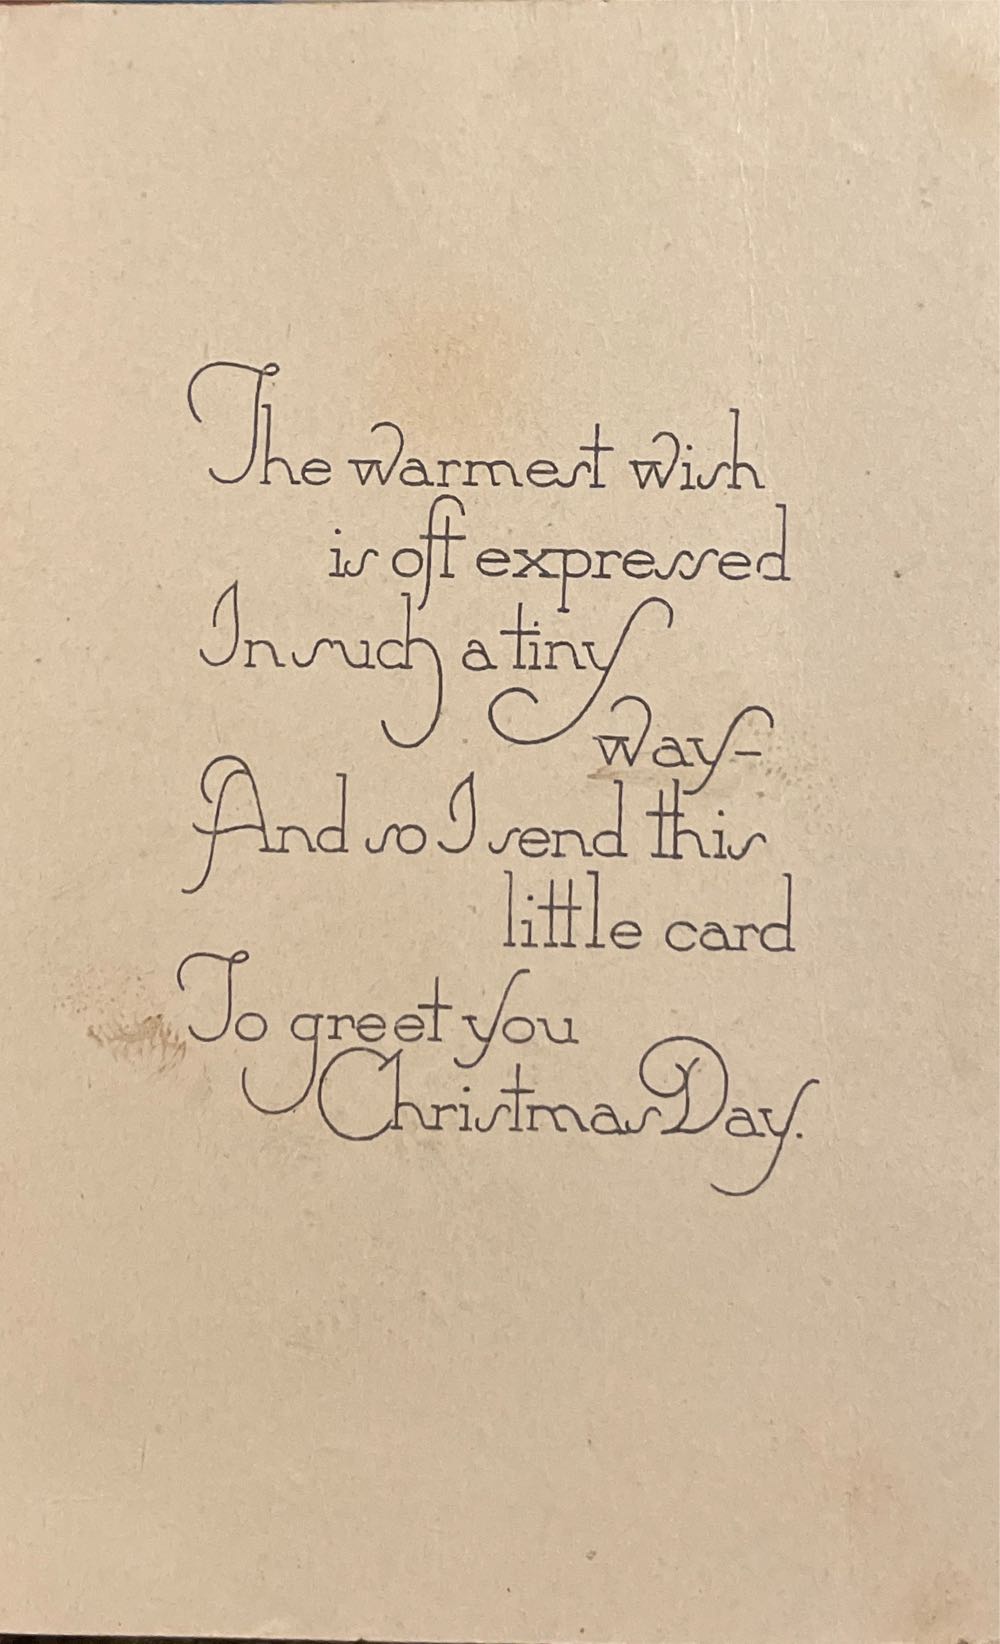 The warmest wish
is oft expressed
In such a tiny
way-
And so I send this
little card
To greet you
Christmas Day.